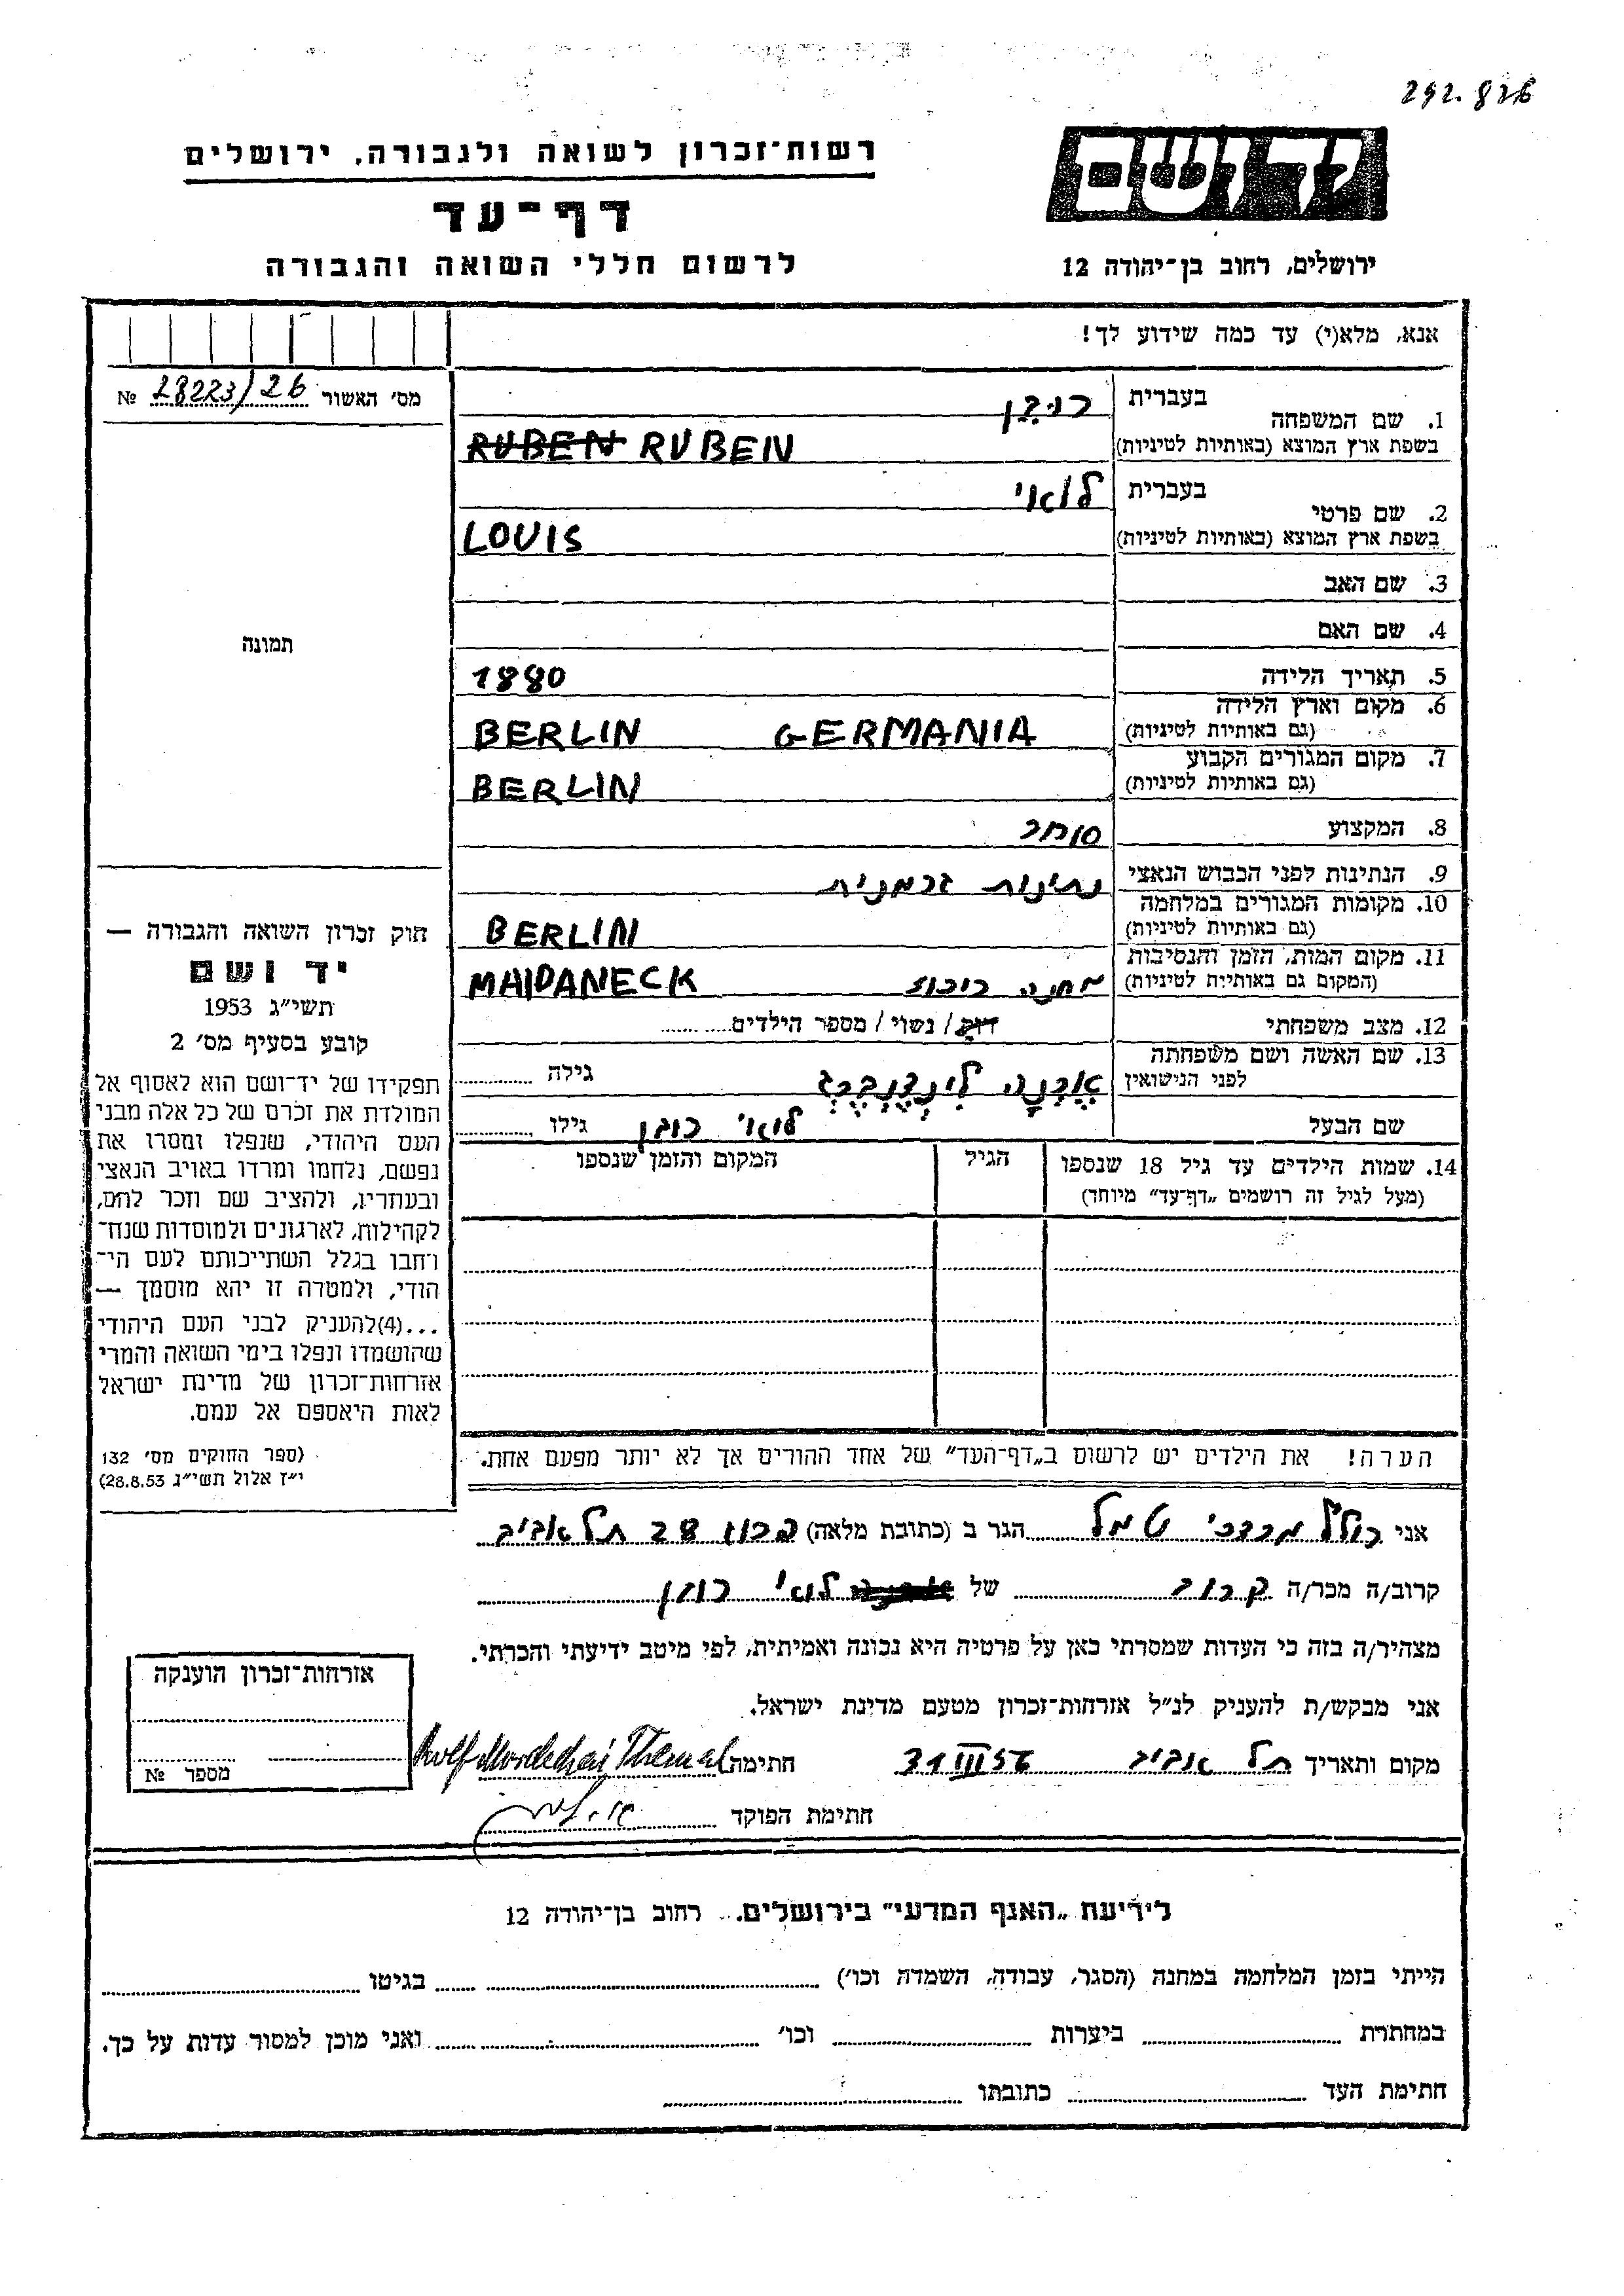 292.826
רשות־זכרון לשואה ולגבורה, ירושלים
דף־עד
לרשום חללי השואה והגבורה
יד ושם
ירושלים, רחוב בן־יהודה 12
אנא, מלא(י) עד כמה שידוע לך!
מס׳ האשור 28223/26 №
1. שם המשפחה
בעברית רובן
בשפת ארץ המוצא (באותיות לטיניות) RUBEN RUBEN
2. שם פרטי
בעברית לואי
בשפת ארץ המוצא (באותיות לטיניות) LOUIS
3. שם האב
4. שם האם
תמונה
5. תאריך הלידה 1880
6. מקום וארץ הלידה
(גם באותיות לטיניות) BERLIN GERMANIA
7. מקום המגורים הקבוע
(גם באותיות לטיניות) BERLIN
8. המקצוע סוחר
9. הנתינות לפני הכבוש הנאצי נתינות גרמנית
10. מקומות המגורים במלחמה
(גם באותיות לטיניות) BERLIN
11. מקום המות, הזמן והנסיבות
(המקום גם באותיות לטיניות) מחנה ריכוז MAIDANECK
12. מצב משפחתי רווק / נשוי / מספר הילדים
13. שם האשה ושם משפחתה
לפני הנישואין אֶרְנָה לִינְדֶנְבֶּרְג גילה
שם הבעל לואי רובן גילו
14. שמות הילדים עד גיל 18 שנספו
(מעל לגיל זה רושמים „דף־עד” מיוחד)
הגיל
המקום והזמן שנספו
חוק זכרון השואה והגבורה —
יד ושם
תשי״ג 1953
קובע בסעיף מס׳ 2
תפקידו של יד־ושם הוא לאסוף אל
המולדת את זכרם של כל אלה מבני
העם היהודי, שנפלו ומסרו את
נפשם, נלחמו ומרדו באויב הנאצי
ובעוזריו, ולהציב שם וזכר להם,
לקהילות, לארגונים ולמוסדות שנח־
רבו בגלל השתייכותם לעם הי־
הודי, ולמטרה זו יהא מוסמך —
...(4)להעניק לבני העם היהודי
שהושמדו ונפלו בימי השואה והמרי
אזרחות־זכרון של מדינת ישראל
לאות היאספם אל עמם.
(ספר החוקים מס׳ 132
י״ז אלול תשי״ג 28.8.53)
הערה! את הילדים יש לרשום ב„דף־העד” של אחד ההורים אך לא יותר מפעם אחת.
אני רולף מרדכי טמל הגר ב (כתובת מלאה) 28 תל אביב
קרוב/ה מכר/ה קרוב של לואי רובן
מצהיר/ה בזה כי העדות שמסרתי כאן על פרטיה היא נכונה ואמיתית, לפי מיטב ידיעתי והכרתי.
אני מבקש/ת להעניק לנ״ל אזרחות־זכרון מטעם מדינת ישראל.
מקום ותאריך תל אביב 31 III 56 חתימה Rolf Mordechai Themal
חתימת הפוקד
אזרחות־זכרון הוענקה
מספר №
לידיעת „האגף המדעי” בירושלים, רחוב בן־יהודה 12
הייתי בזמן המלחמה במחנה (הסגר, עבודה, השמדה וכו׳) בגיטו
במחתרת ביערות וכו׳ ואני מוכן למסור עדות על כך.
חתימת העד כתובתו